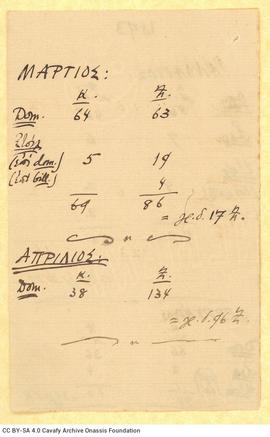 ΜΑΡΤΙΟΣ:
κ.
Dom. 64 63
(επί dom.) 5 19
(επί bill.) 4
69 86
= χ.δ. 17
ΑΠΡΙΛΙΟΣ:
κ.
Dom. 38 134
= χ.δ. 96
CC BY-SA 4.0 Cavafy Archive Onassis Foundation